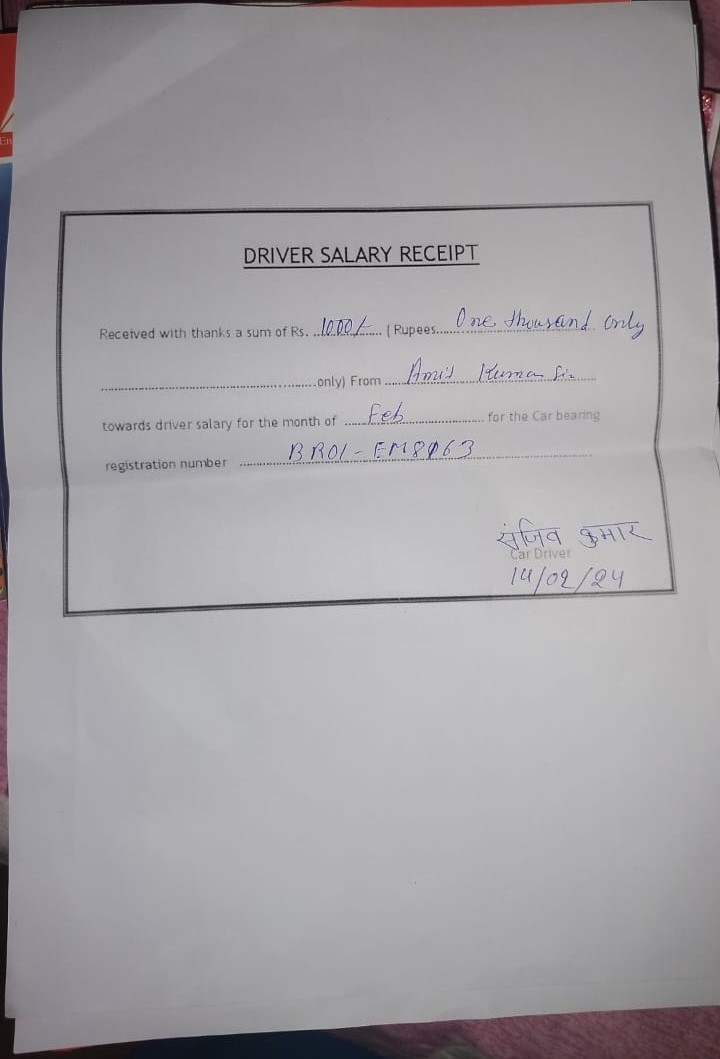 DRIVER SALARY RECEIPT
Received with thanks a sum of Rs. ..1000/-.... ( Rupees....One thousand only
..........................................only) From ....Amit Kumar Sir......
towards driver salary for the month of .....Feb.................. for the Car bearing
registration number ...........BR01-EM8063..............................
संजिव कुमार
Car Driver
14/02/24
En